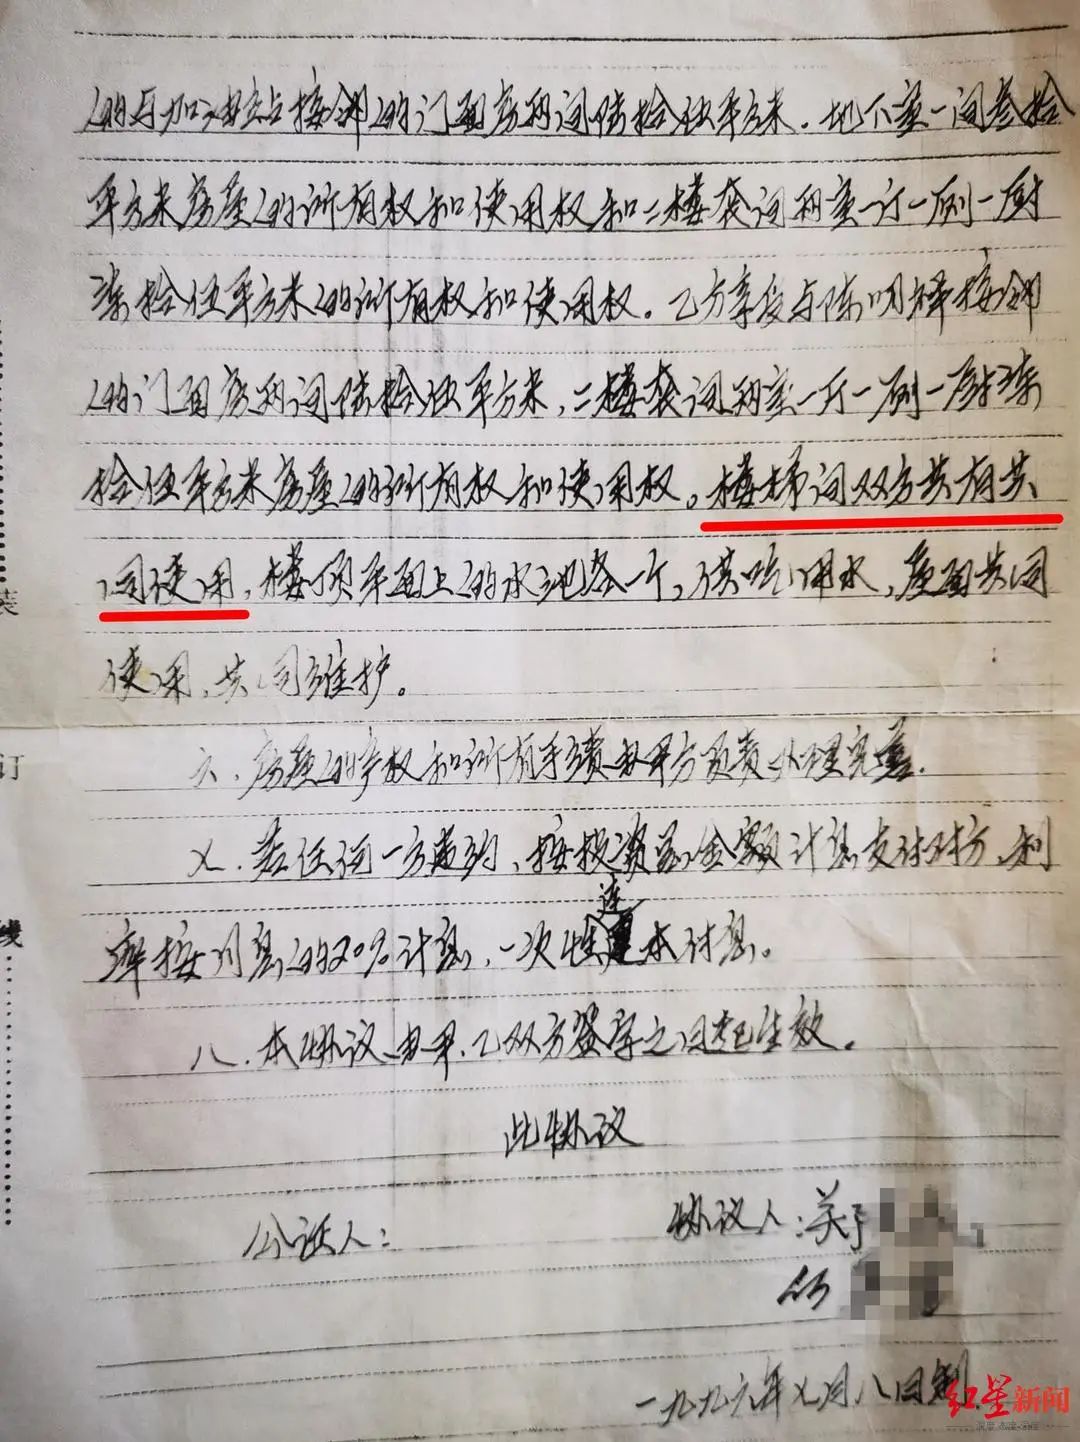 的与加油站接邻的门面房两间陆拾伍平方米，地下室一间叁拾
平方米房屋的所有权和使用权和二楼套间两室一厅一厕一厨
柒拾伍平方米的所有权和使用权。乙方享受与陈明祥接邻
的门面房两间陆拾伍平方米，二楼套间两室一厅一厕一厨柒
拾伍平方米房屋的所有权和使用权。楼梯间双方共有共
同使用，楼顶平面上的水池各一个，供吃用水，屋面共同
使用、共同维护。
六、房屋的产权和所有手续由甲方负责办理完善.
七.若任何一方违约、按投资总金额计息支付对方、利
率按月息的20%计息、一次性连本付息。
八、本协议由甲、乙双方签字之日起生效。
此协议
公证人：
协议人：关
何
一九九六年七月八日制.
装
订
线
红星新闻